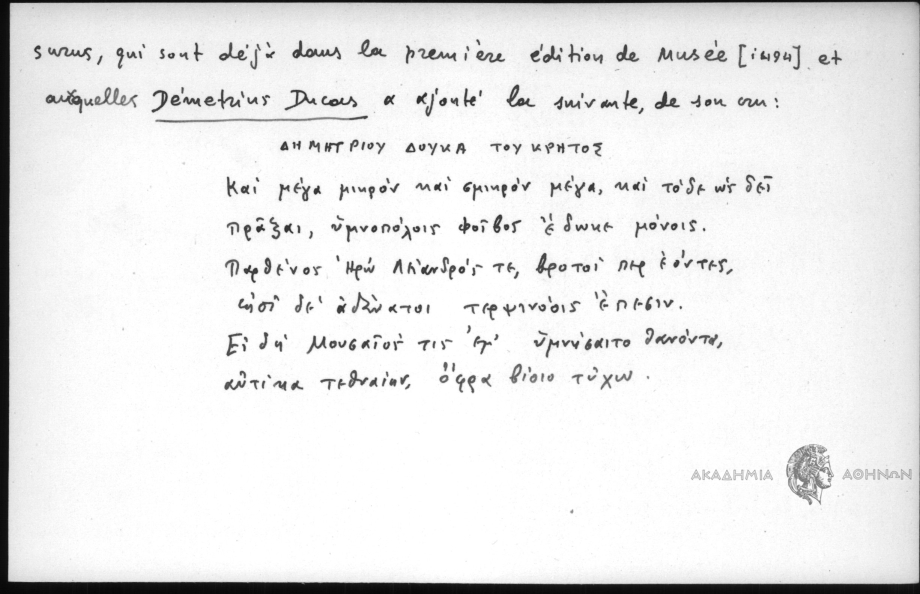 surus, qui sont déjà dans la première édition de Musée [1494] et
auxquelles Démetrius Ducas a ajouté la suivante, de son cru:
ΔΗΜΗΤΡΙΟΥ ΔΟΥΚΑ ΤΟΥ ΚΡΗΤΟΣ
Καὶ μέγα μικρὸν καὶ σμικρὸν μέγα, καὶ τόδε ὡς δεῖ
πρᾶξαι, ὑμνοπόλοις Φοῖβος ἔδωκε μόνοις.
Παρθένος Ἡρὼ Λείανδρός τε, βροτοί περ ἐόντες,
εἰσὶ δέ ἀθάνατοι τερψινόοις ἔπεσιν.
Εἰ δὴ Μουσαῖός τις ἔμ' ὑμνήσαιτο θανόντα,
αὐτίκα τεθναίην, ὄφρα βίοιο τύχω.
ΑΚΑΔΗΜΙΑ ΑΘΗΝΩΝ